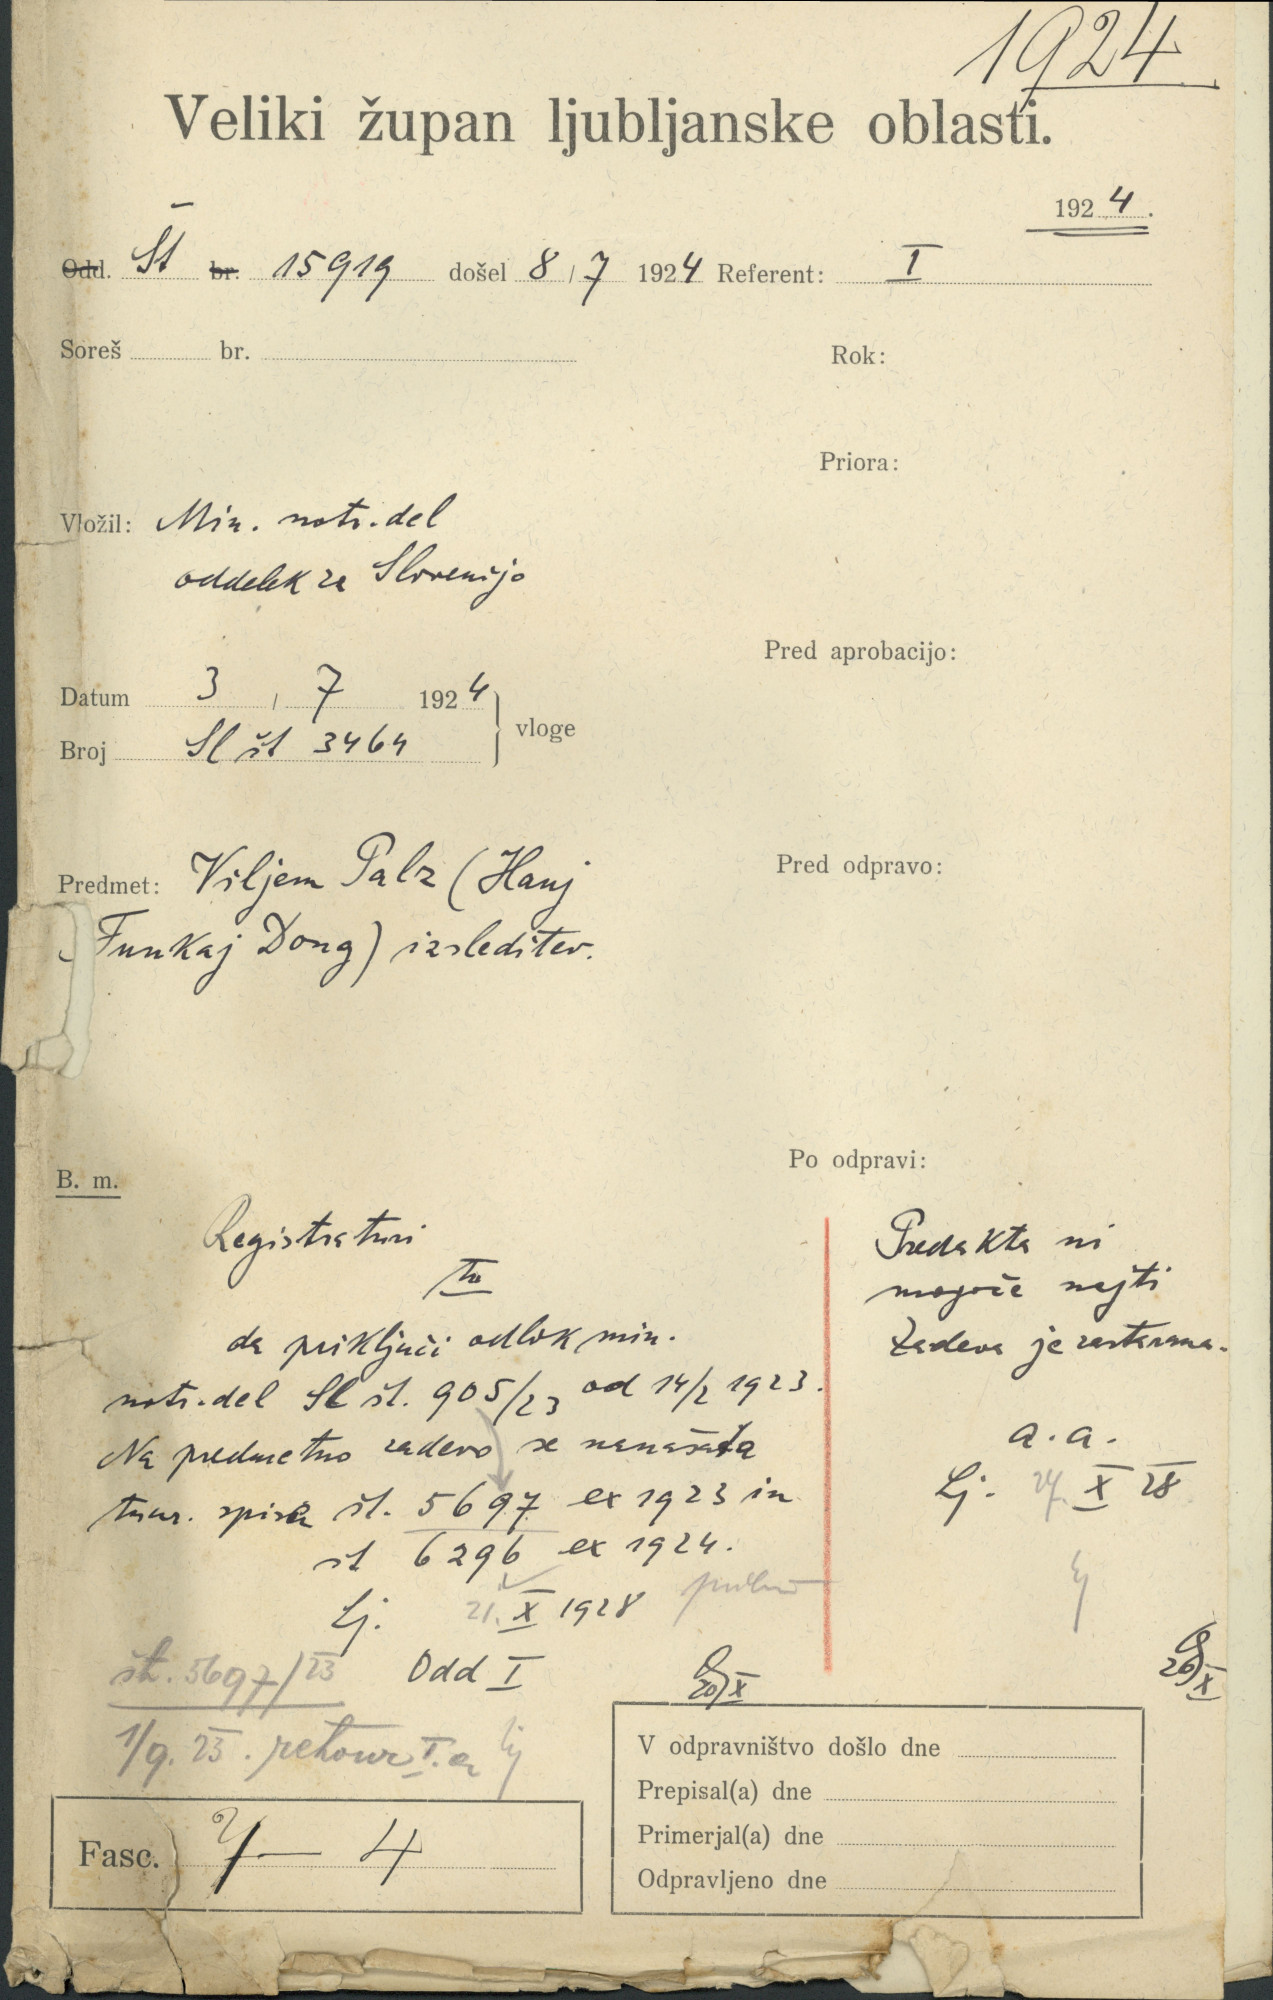 1924
Veliki župan ljubljanske oblasti.
1924.
Odd. Št br. 15919 došel 8/7 1924 Referent: I
Soreš br.
Rok:
Priora:
Vložil: Min. notr. del
oddelek za Slovenijo
Pred aprobacijo:
Datum 3/7 1924
Broj Sl št 3464
vloge
Predmet: Viljem Palz (Hanj
Funkaj Dong) izsleditev.
Pred odpravo:
Po odpravi:
B. m.
Registraturi
tu
da priključi odlok min.
notr. del Sl št. 905/23 od 14/2 1923.
Na predmetno zadevo se nanašata
tuur. spisa št. 5697 ex 1923 in
št 6296 ex 1924.
Lj. 21. X 1928
Odd I
20/X
št. 5697/23
1/9. 25. retour I. a
Predakta ni
mogoče najti
Zadeva je zastarana.
a. a.
Lj. 24. X 28
20/X
Fasc. 7 — 4
V odpravništvo došlo dne
Prepisal(a) dne
Primerjal(a) dne
Odpravljeno dne